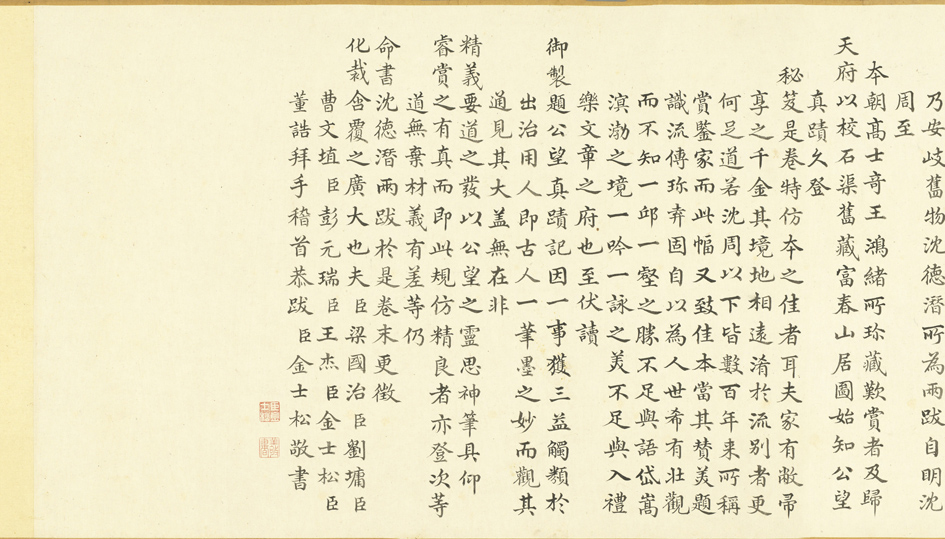 乃安岐舊物沈德潛所為兩跋自明沈
周至
本朝高士奇王鴻緒所珎藏歎賞者及歸
天府以校石渠舊藏富春山居圖始知公望
真蹟久登
秘笈是卷特仿本之佳者耳夫家有敝帚
享之千金其境地相遠淆於流别者更
何足道若沈周以下皆數百年来所稱
賞鑒家而此幅又致佳本當其赞美題
識流傳珎弆固自以為人世希有壮觀
而不知一邱一壑之勝不足與語岱嵩
溟渤之境一吟一詠之美不足與入禮
樂文章之府也至伏讀
御製題公望真蹟記因一事獲三益觸類於
出治用人即古人一筆墨之妙而觀其
通見其大盖無在非
精義要道之發以公望之靈思神筆具仰
睿賞之有真而即此規仿精良者亦登次等
道無棄材義有差等仍
命書沈德潛兩跋於是卷末更徵
化裁含覆之廣大也夫臣梁國治臣劉墉臣
曹文埴臣彭元瑞臣王杰臣金士松臣
董誥拜手稽首恭跋 臣金士松敬書